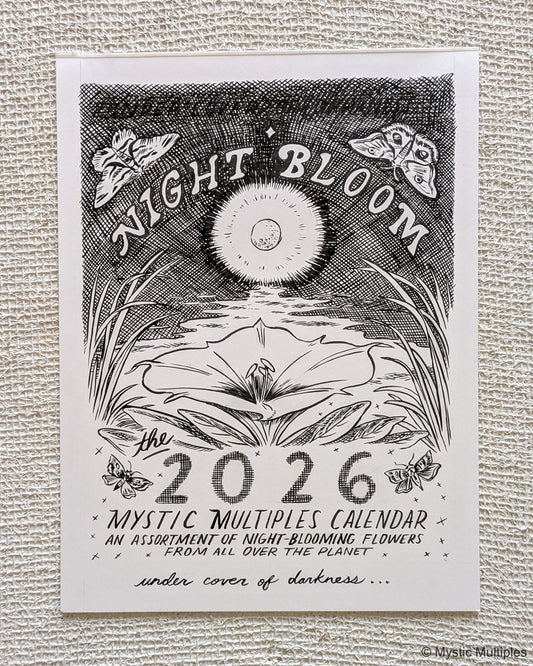 NIGHT BLOOM
the
2026
MYSTIC MULTIPLES CALENDAR
AN ASSORTMENT OF NIGHT-BLOOMING FLOWERS
FROM ALL OVER THE PLANET
under cover of darkness...
© Mystic Multiples